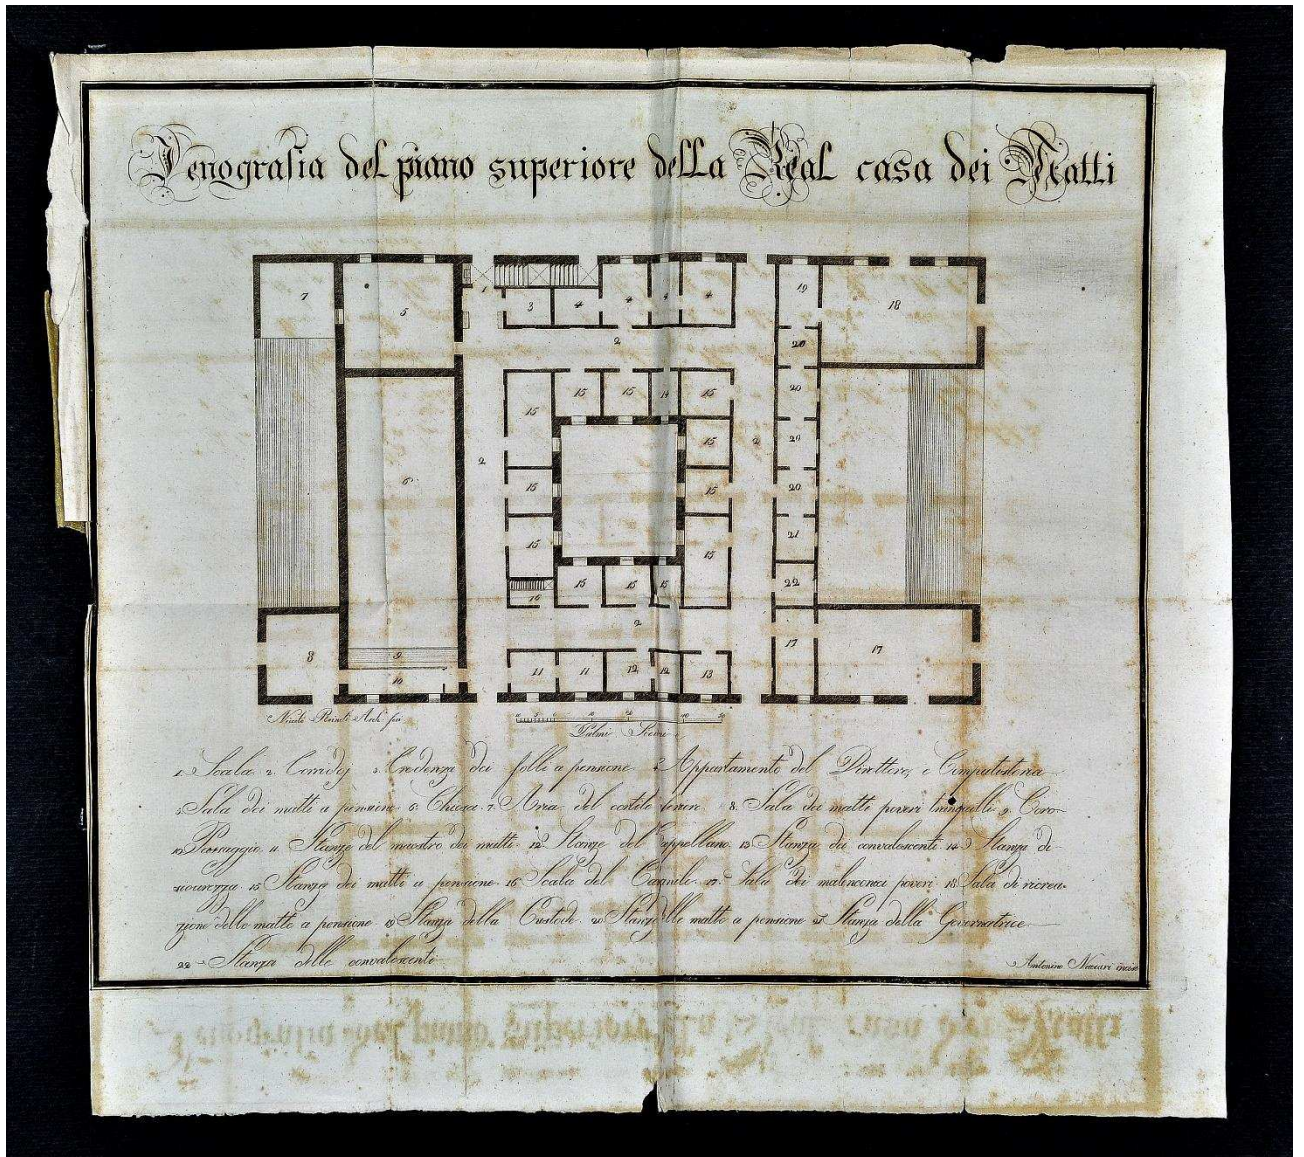 Icnografia del piano superiore della Real casa dei Matti
7 5 1 3 4 4 4 4 19 18
2 20
15 15 14 15 20
15 15 2 20
6 2 15 15 20
15 15 21
15 15 15 15 22
16 2
8 9 11 11 12 12 13 17 17
10
Nicolò Arch. fece
Palmi Siciliani
1. Scala 2. Corridoj 3. Credenza dei folli a pensione 4. Appartamento del Direttore, e Computisteria
5. Sala dei matti a pensione 6. Chiesa 7. Area del cortile 8. Sala dei matti poveri tranquilli 9. Coro
10. Passaggio 11. Stanze del maestro dei matti 12. Stanze del Cappellano 13. Stanza dei convalescenti 14. Stanza di
sicurezza 15. Stanza dei matti a pensione 16. Scala del 17. Sala dei malinconici poveri 18. Sala di ricrea-
zione delle matte a pensione 19. Stanza della Custode 20. Stanze delle matte a pensione 21. Stanza della Governatrice
22. Stanza delle convalescenti
Antonino incise